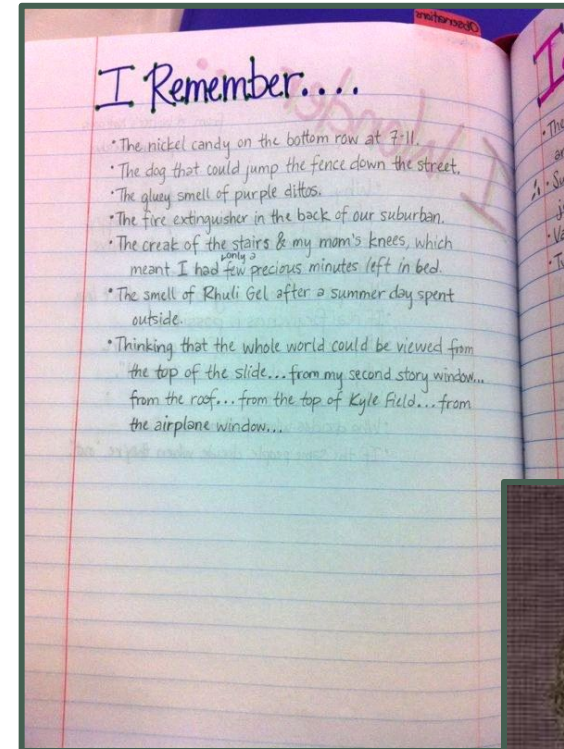 I Remember....
• The nickel candy on the bottom row at 7-11.
• The dog that could jump the fence down the street.
• The gluey smell of purple dittos.
• The fire extinguisher in the back of our suburban.
• The creak of the stairs & my mom's knees, which
meant I had only a few precious minutes left in bed.
• The smell of Rhuli Gel after a summer day spent
outside.
• Thinking that the whole world could be viewed from
the top of the slide... from my second story window...
from the roof... from the top of Kyle Field... from
the airplane window...
Observations
I Wonder
I
• The